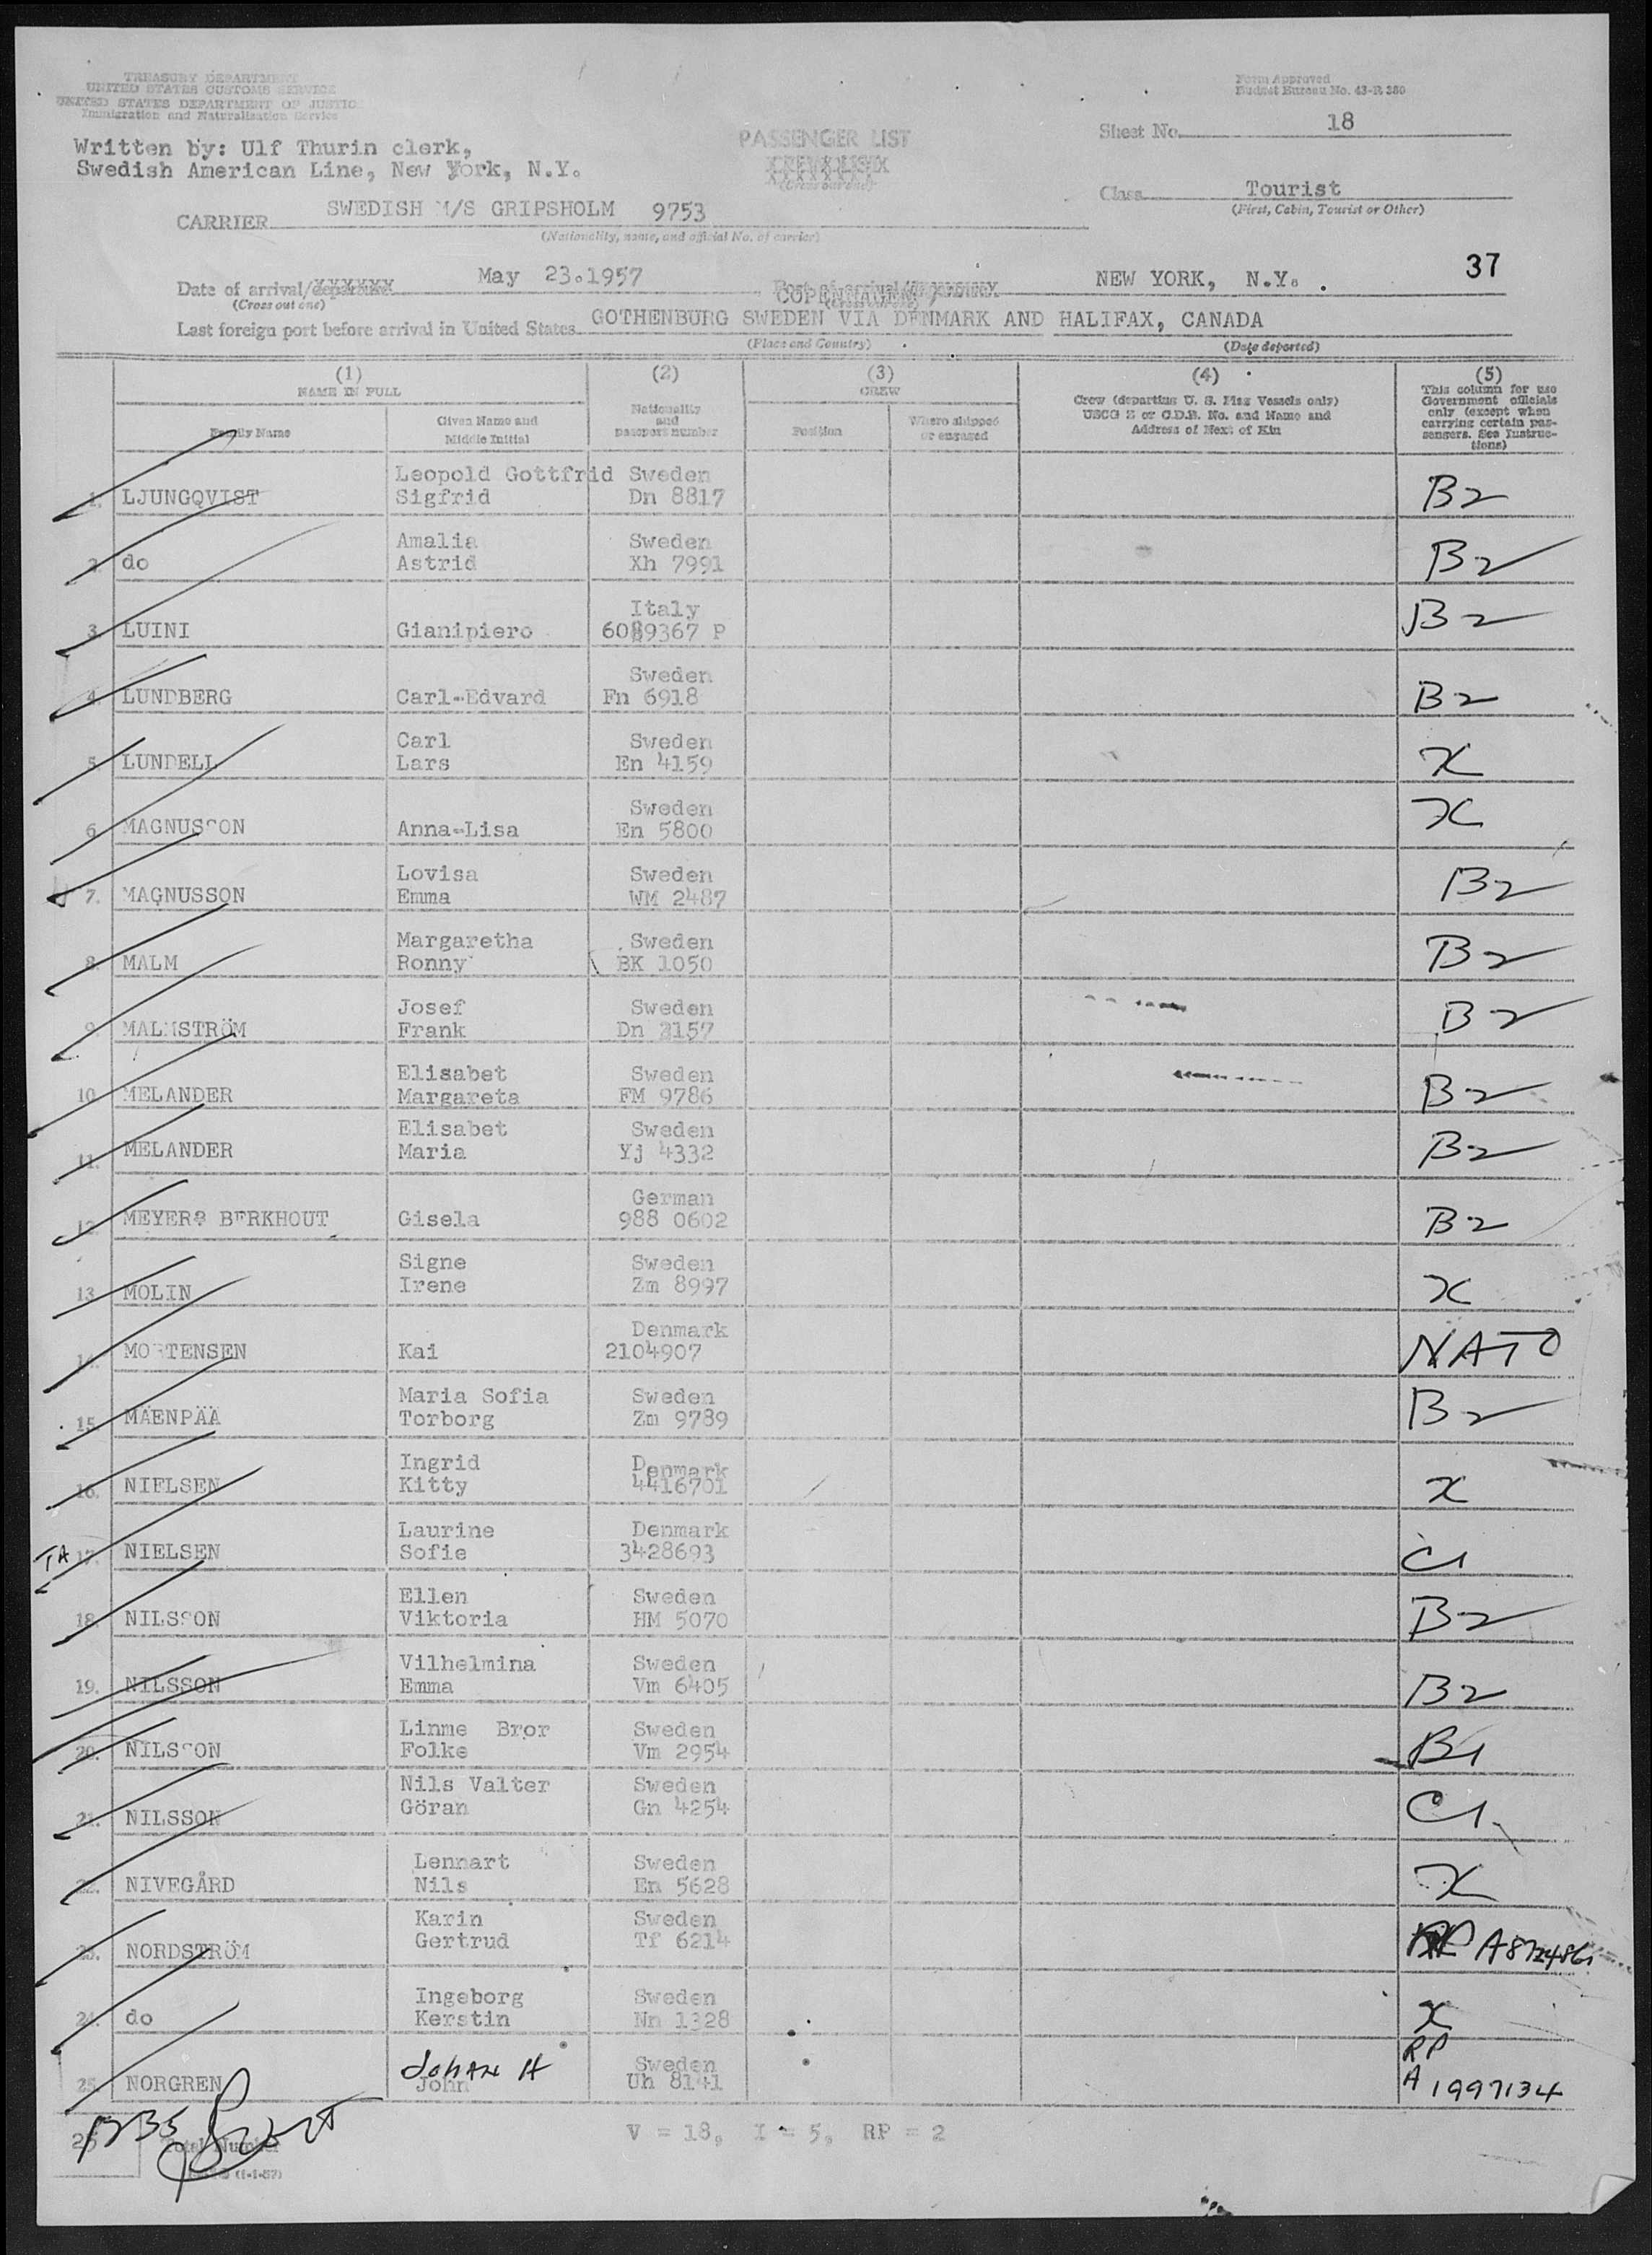 TREASURY DEPARTMENT
UNITED STATES CUSTOMS SERVICE
UNITED STATES DEPARTMENT OF JUSTICE
Immigration and Naturalization Service
Form Approved
Budget Bureau No. 43-R 380
Written by: Ulf Thurin clerk,
Swedish American Line, New York, N.Y.
PASSENGER LIST
(Cross out one)
Sheet No. 18
Class Tourist
(First, Cabin, Tourist or Other)
CARRIER SWEDISH M/S GRIPSHOLM 9753
(Nationality, name, and official No. of carrier)
37
Date of arrival/departure May 23.1957 Port of arrival NEW YORK, N.Y.
(Cross out one)
COPENHAGEN,
Last foreign port before arrival in United States GOTHENBURG SWEDEN VIA DENMARK AND HALIFAX, CANADA
(Place and Country) (Date departed)
(1) NAME IN FULL
Family Name
Given Name and Middle Initial
(2) Nationality and passport number
(3) CREW
Position
Where shipped or engaged
(4) Crew (departing U. S. Flag Vessels only) USCG Z or C.D.B. No. and Name and Address of Next of Kin
(5) This column for use Government officials only (except when carrying certain passengers. See Instructions)
1. LJUNGQVIST Leopold Gottfrid Sigfrid Sweden Dn 8817 B2
2. do Amalia Astrid Sweden Xh 7991 B2
3. LUINI Gianipiero Italy 6089367 P B2
4. LUNDBERG Carl-Edvard Sweden Fn 6918 B2
5. LUNDELL Carl Lars Sweden En 4159 X
6. MAGNUSSON Anna-Lisa Sweden En 5800 X
7. MAGNUSSON Lovisa Emma Sweden WM 2487 B2
8. MALM Margaretha Ronny Sweden BK 1050 B2
9. MALMSTRÖM Josef Frank Sweden Dn 2157 B2
10. MELANDER Elisabet Margareta Sweden FM 9786 B2
11. MELANDER Elisabet Maria Sweden Yj 4332 B2
12. MEYERS BERKHOUT Gisela German 988 0602 B2
13. MOLIN Signe Irene Sweden Zm 8997 X
14. MORTENSEN Kai Denmark 2104907 NATO
15. MÄENPÄÄ Maria Sofia Torborg Sweden Zm 9789 B2
16. NIELSEN Ingrid Kitty Denmark 4416701 X
TA 17. NIELSEN Laurine Sofie Denmark 3428693 C1
18. NILSSON Ellen Viktoria Sweden HM 5070 B2
19. NILSSON Vilhelmina Emma Sweden Vm 6405 B2
20. NILSSON Linme Bror Folke Sweden Vm 2954 B1
21. NILSSON Nils Valter Göran Sweden Gn 4254 C1
22. NIVEGÅRD Lennart Nils Sweden En 5628 X
23. NORDSTRÖM Karin Gertrud Sweden Tf 6214 RP
24. do Ingeborg Kerstin Sweden Nn 1328 X
25. NORGREN JOHAN H John Sweden Uh 8141 RP A 1997134
25 Total Number
V = 18, I = 5, RP = 2
(1-1-57)